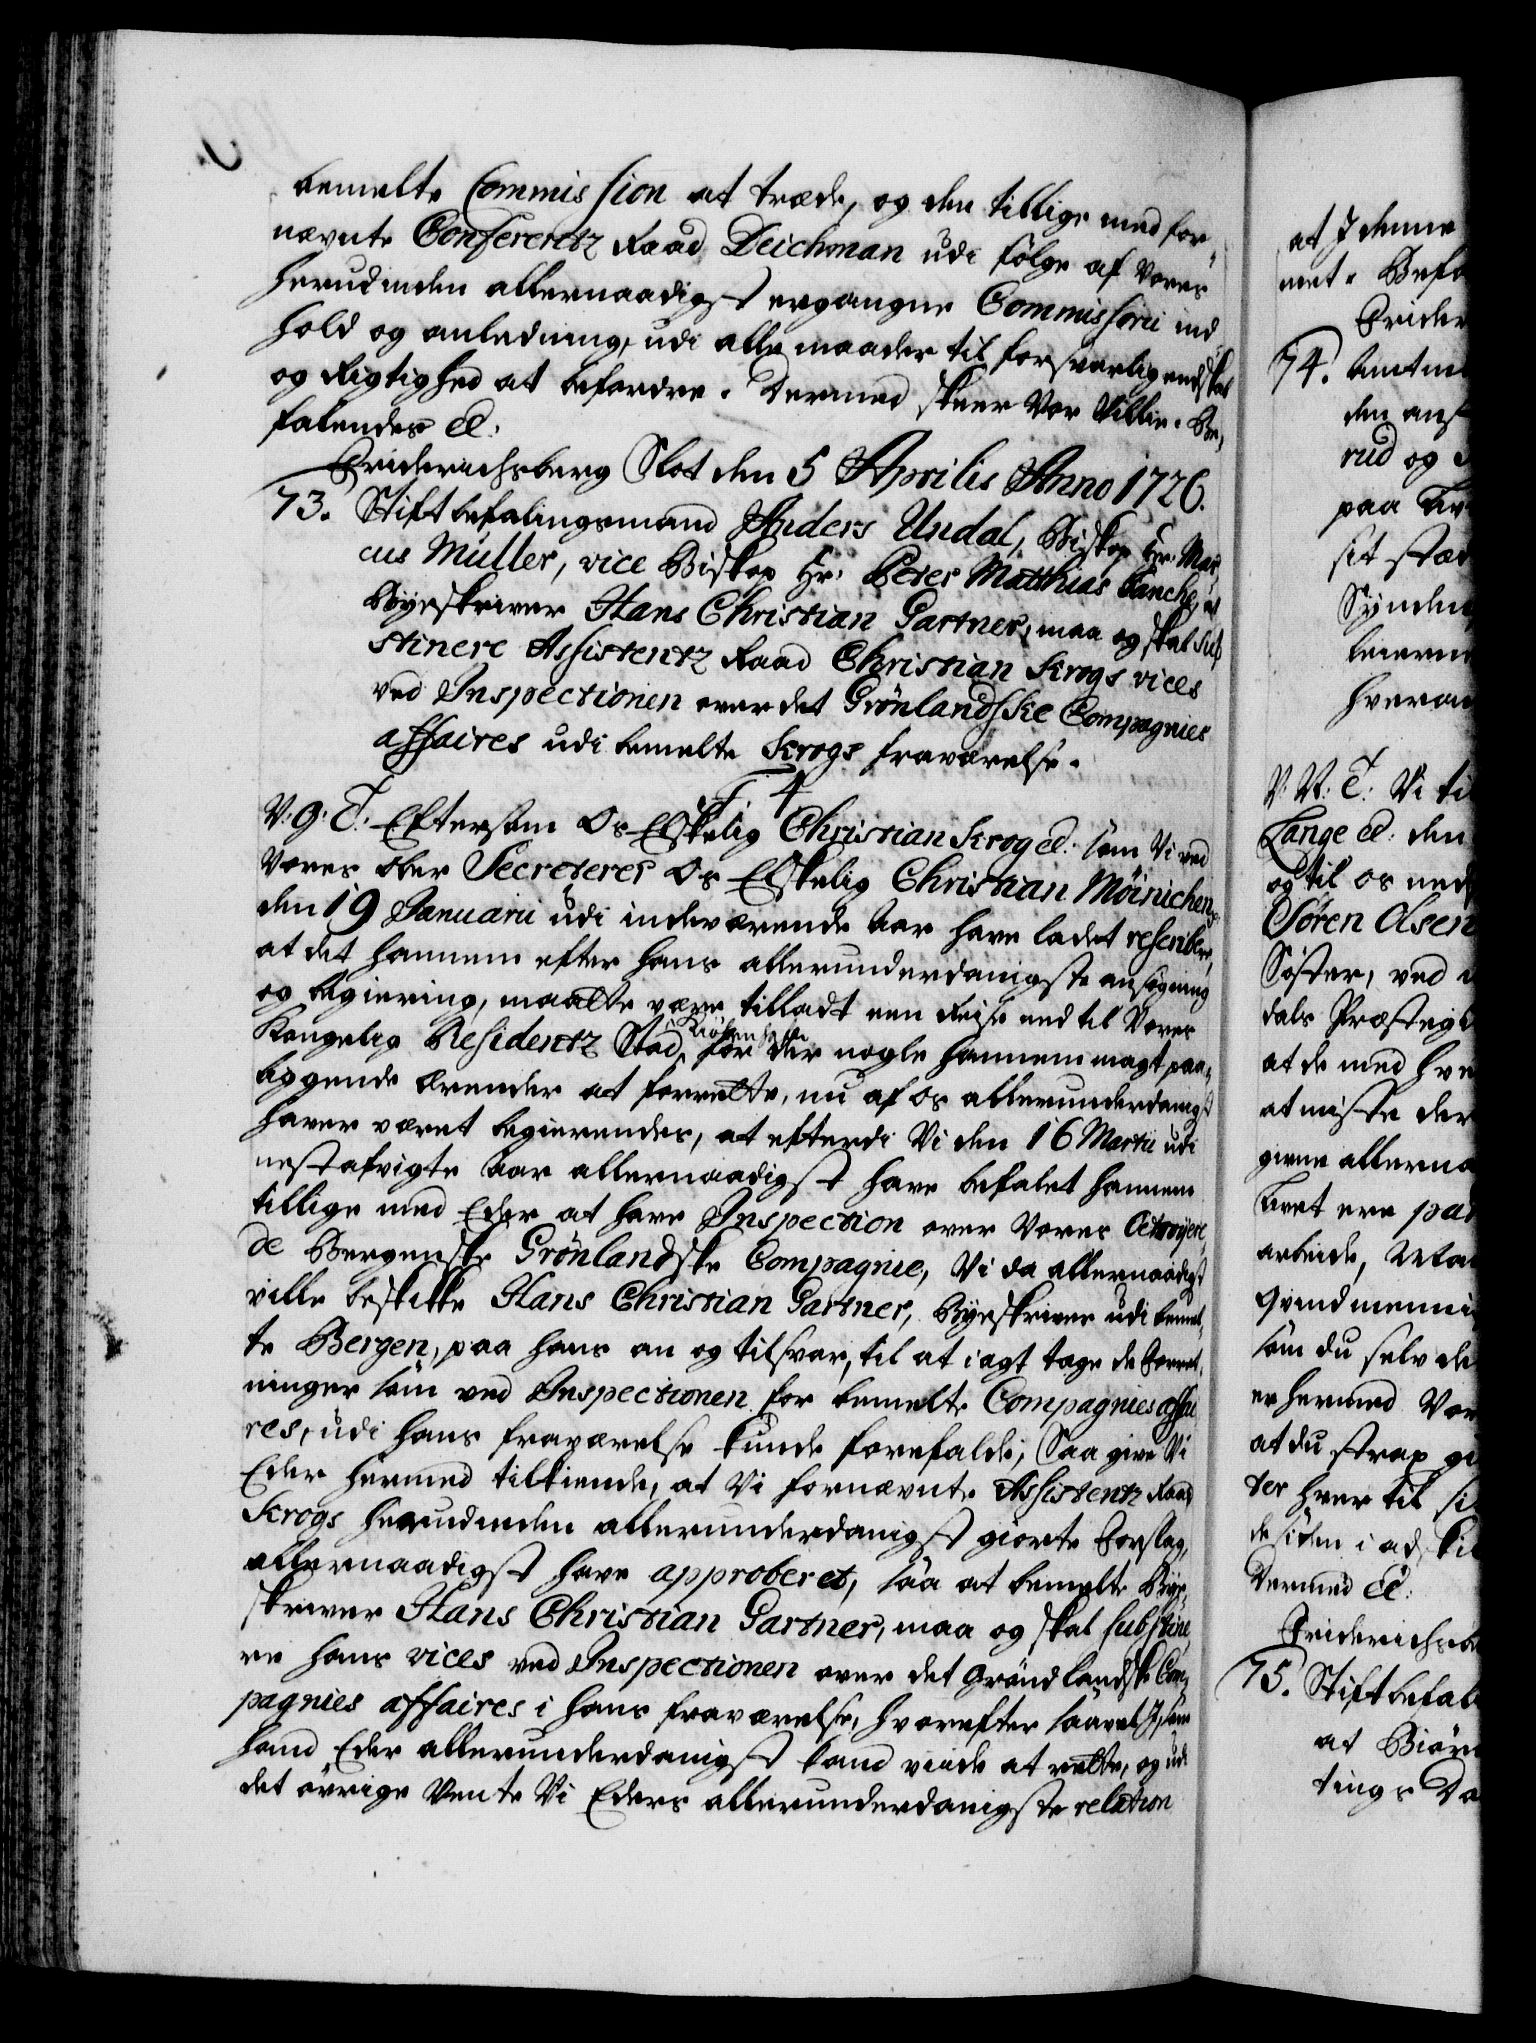 bemelte Commission at træde, og den tillige med for-
nævnte Conferentz Raad Deichman udi følge af Vores
herudinden allernaadigst ergangne Commissorii ind-
hold og anledning, udi alle maader til forsvarlig endskab
og Rigtighed at befordre. Dermed skeer Vor Villie. Be-
falendes &.
Friderichsberg Slot den 5 Aprilis Anno 1726.
73. Stiftbefalingsmand Anders Undal, Biskop Hr. Mar-
cus Müller, vice Biskop Hr. Peter Matthias Lanche, at
Byeskriver Hans Christian Gartner, maa og skal sub-
stinere Assistentz Raad Christian Krogs vices
ved Inspectionen over det Grönlandske Compagnies
affaires udi bemelte Krogs fraværelse.
F 4
V. G. T. Eftersom Os Elskelig Christian Krog &. som Vi ved
Vores Ober Secreterer Os Elskelig Christian Möinichen
den 19 Januarii udi indeværende Aar have ladet rescribere,
at det hannem efter hans allerunderdanigste ansøgning
og begiering, maatte være tilladt een Reise ned til Vores
Kongelig Residentz Stad Kiöbenhafn for der nogle hannem magt paa-
liggende Ærender at forrette, nu af Os allerunderdanigst
haver været begierendes, at efterdi Vi den 16 Martii udi
nestafvigte Aar allernaadigst have befalet hannem
tillige med Eder at have Inspection over Vores Octroyere-
de Bergenske Grönlandske Compagnie, Vi da allernaadigst
ville beskikke Hans Christian Gartner, Byeskriver udi bemel-
te Bergen, paa hans an og tilsvar, til at i agt tage de Forret-
ninger som ved Inspectionen for bemelte Compagnies affai-
res, udi hans fraværelse kunde forefalde; Saa give Vi
Eder hermed tilkiende, at Vi fornævnte Assistentz Raad
Krogs herudinden allerunderdanigst giorte Forslag,
allernaadigst have approberet, saa at bemelte Bye-
skriver Hans Christian Gartner, maa og skal substine-
re hans vices ved Inspectionen over det Gröndlandske Com-
pagnies affaires i hans fraværelse, hvorefter saavel I, som
hand Eder allerunderdanigst kand viide at rette, og udi
det øvrige Vente Vi Eders allerunderdanigste relation
at I denne
met. Befa
Frider
74. Amtm
den ans
rud og
paa
sit
Synden
hveran
V. V. T. Vi til
Lange &. den
og til os ned
Sören Olsen
Söster, ved
dals Præstegi
at de med hver
at miste der
givne allerna
arbeide,
Qvindmenni
som du selv de
er hermed Vor
at du strax gi
ter hver til si
de siden i ad ki
Dermed &.
Friderichsbe
75. Stiftbefal
at Biörn
tings